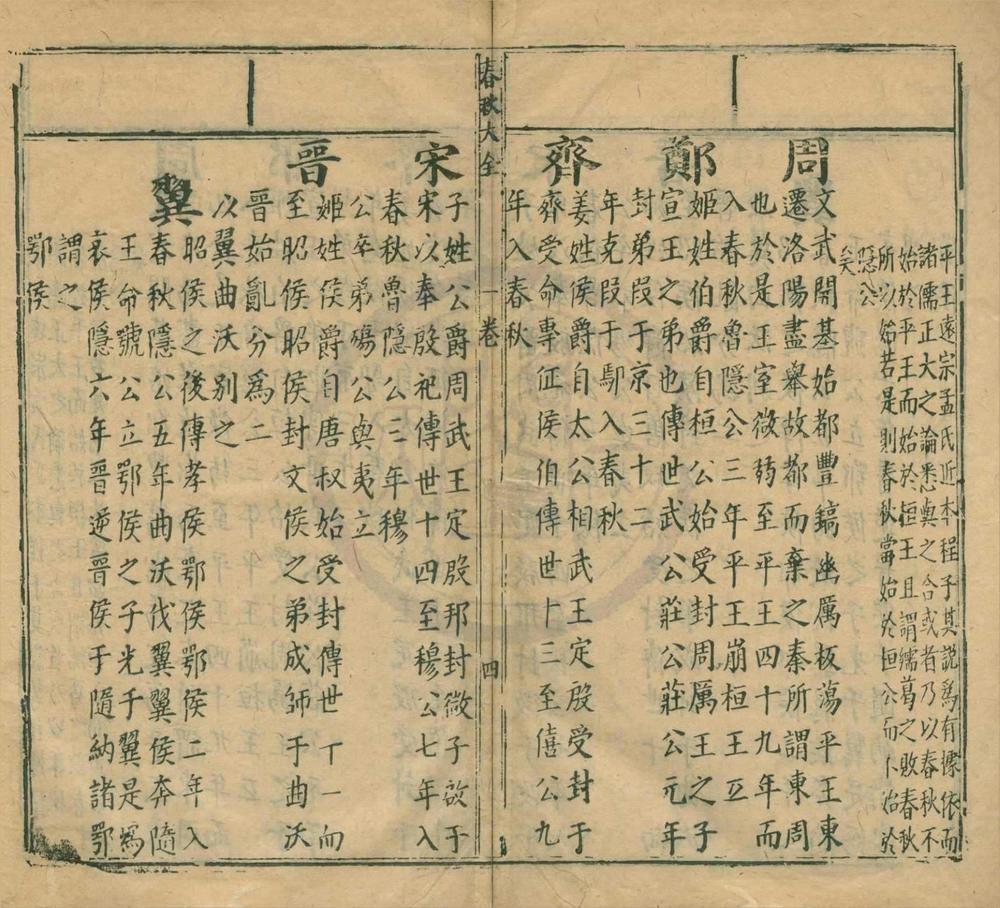 平王遠宗孟氏近本程子其說為有據依而
諸儒正大之論悉與之合或者乃以春秋不
始於平王而始於桓王且謂繻葛之敗春秋
所以始若是則春秋當始於桓公而不始於
隱公
矣
周
文武開基始都豐鎬幽厲板蕩平王東
遷洛陽盡舉故都而棄之秦所謂東周
也於是王室微弱至平王四十九年而
入春秋魯隱公三年平王崩桓王立
鄭
姬姓伯爵自桓公始受封周厲王之子
宣王之弟也傳世武公莊公莊公元年
封弟段于京三十二
年克段于鄢入春秋
齊
姜姓侯爵自太公相武王定殷受封于
齊受命專征侯伯傳世十三至僖公九
年入春秋
春秋大全
一卷
四
宋
子姓公爵周武王定殷邦封微子啟于
宋以奉殷祀傳世十四至穆公七年入
春秋魯隱公三年穆
公卒弟殤公與夷立
晉
姬姓侯爵自唐叔始受封傳世丁一而
至昭侯昭侯封文侯之弟成師于曲沃
晉始亂分為二
以翼曲沃別之
翼
昭侯之後傳孝侯鄂侯鄂侯二年入
春秋隱公五年曲沃伐翼翼侯奔隨
王命虢公立鄂侯之子光于翼是為
哀侯隱六年晉逆晉侯于隨納諸鄂
謂之
鄂侯